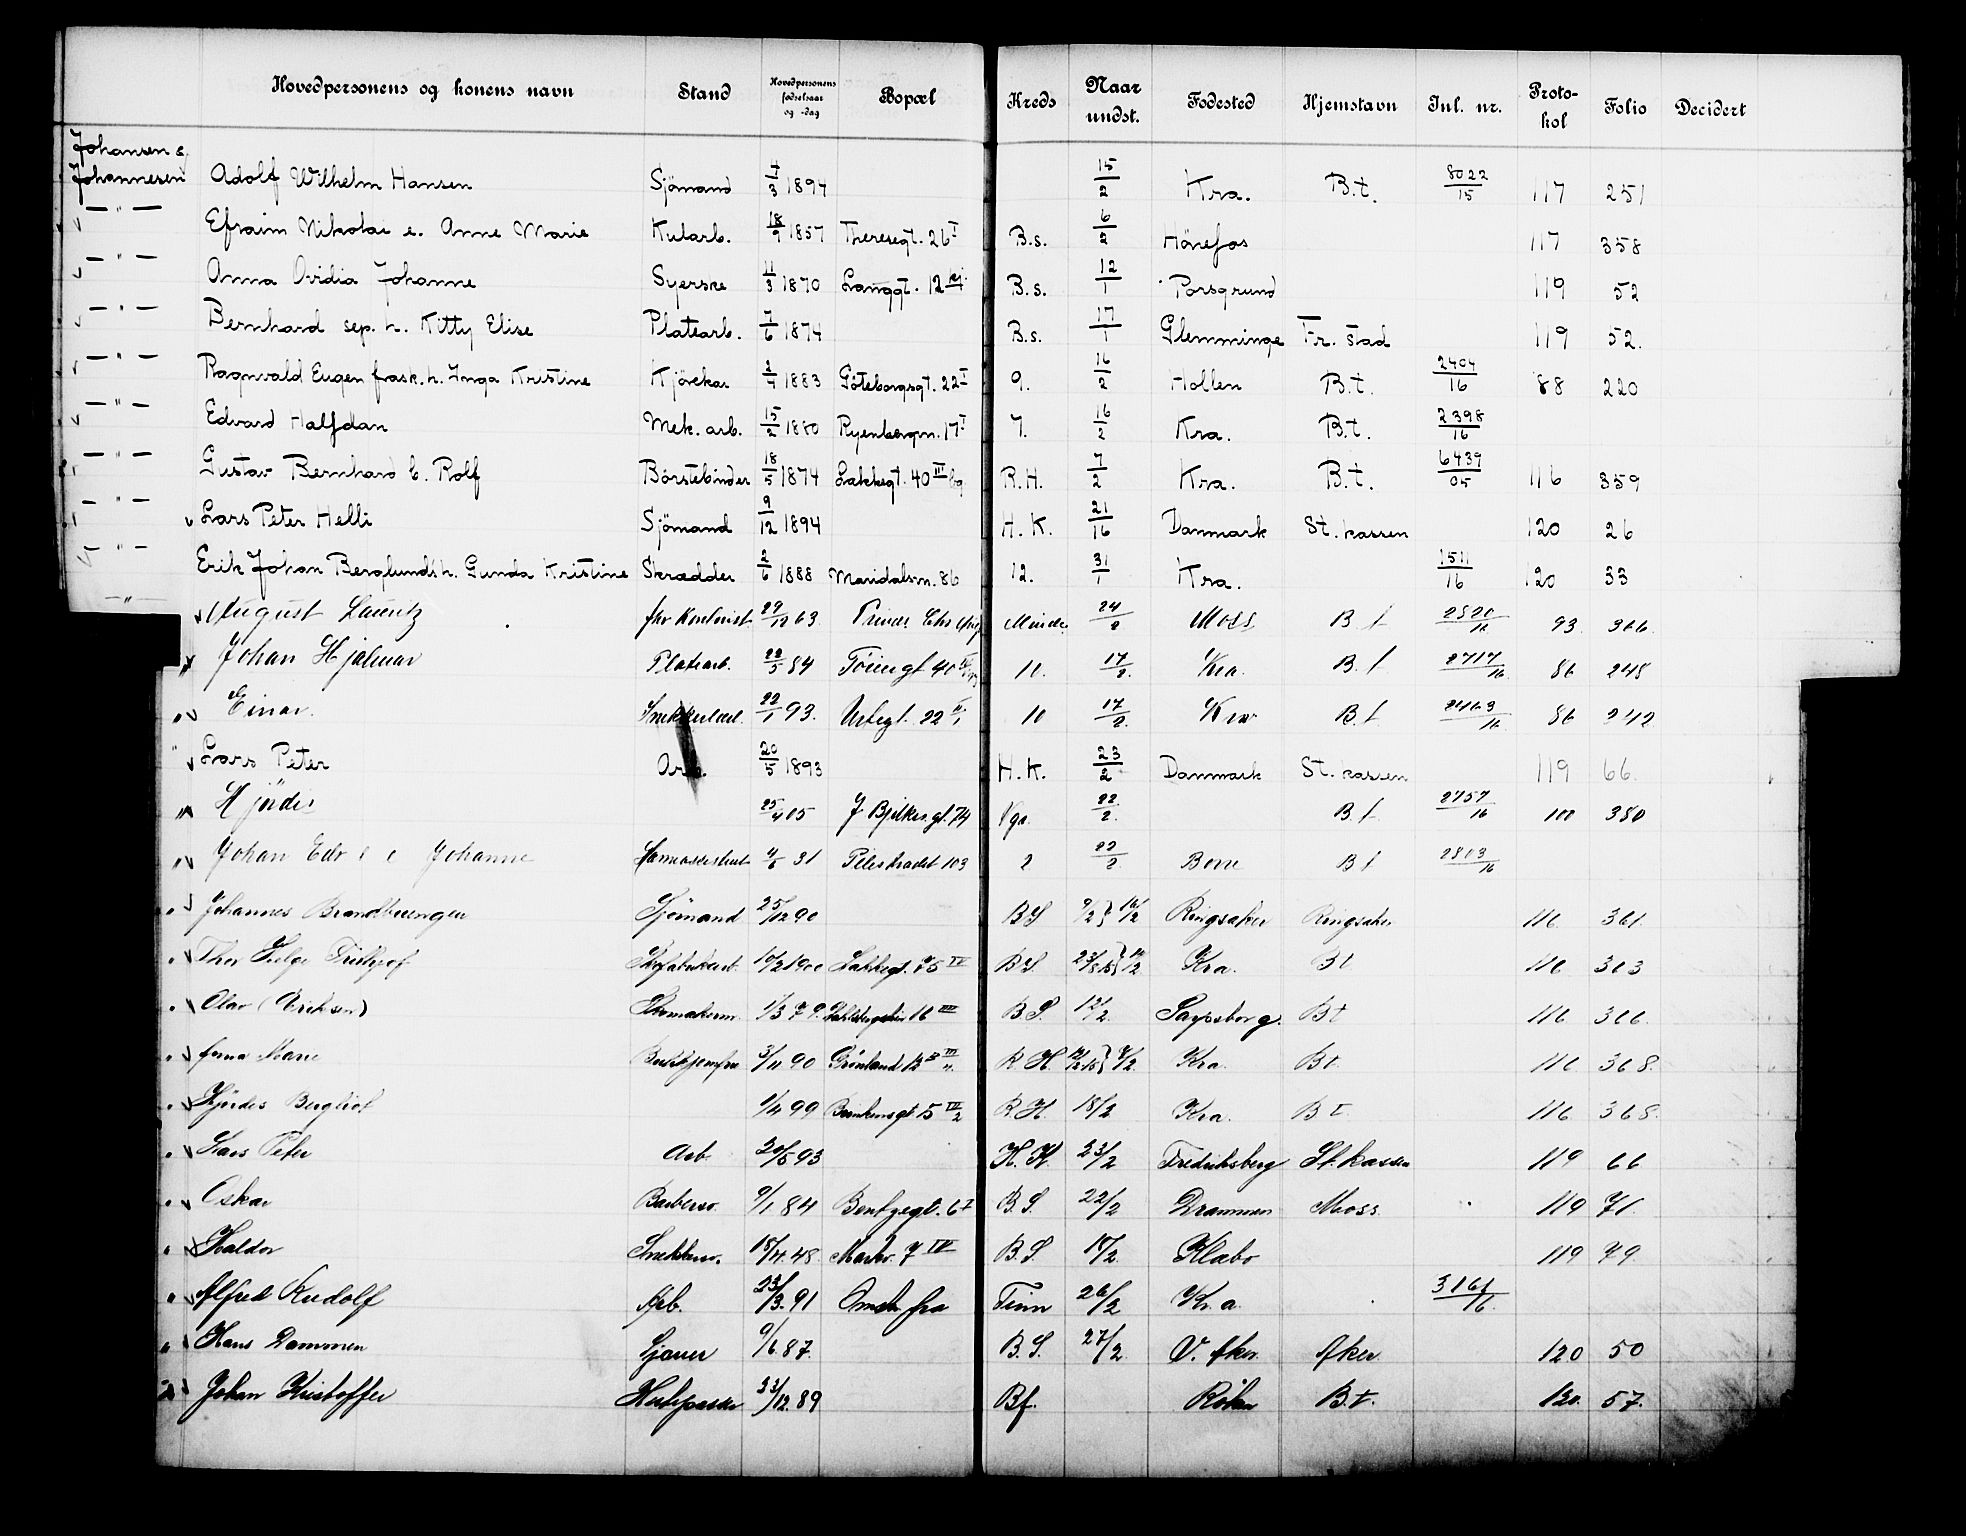 Hovedpersonens og konens navn Stand Hovedpersonens fødselsaar og -dag Bopæl Kreds Naar undst. Fødested Hjemstavn Jul. nr. Protokol Folio Decidert
Johansen &
Johannesen Adolf Wilhelm Hansen Sjömand 4/3 1894 15/2 Kra. B.t. 8022/15 117 251
— " — Efraim Nikolai e. Anne Marie Kularb. 18/9 1857 Theresegt. 26 I B.s. 6/2 Hönefos 117 358
— " — Anna Ovidia Johanne Syerske 11/3 1870 Langgt. 12 B.s. 12/1 Porsgrund 119 52
— " — Bernhard sep. h. Kitty Elise Platearb. 7/6 1874 B.s. 17/1 Glemminge Fr. stad 119 52.
— " — Ragnvald Eugen frask. h. Inga Kristine Kjörekar 2/7 1883 Göteborgsgt. 22 I 9. 16/2 Hollen B.t. 2404/16 88 220
— " — Edvard Halfdan Mek. arb. 15/2 1880 Ryenbergvn. 17 I 7. 16/2 Kra. B.t. 2398/16
— " — Gustav Bernhard b. Rolf Börstebinder 18/5 1874 Lakkegt. 40 III R.H. 7/2 Kra. B.t. 6439/05 116 359
— " — Lars Peter Helli Sjömand 9/12 1894 H.K. 21/16 Danmark St. kassen 120 26
" — Erik Johan Berglundsh. Gunda Kristine Skrædder 2/6 1888 Maridalsvn. 86 12. 31/1 Kra. 1511/16 120 33
— " — August Lauritz fhv Kontorist 29/12 63 Minde 24/2 Moss B t 2520/16 93 306
" Johan Hjalmar Platearb. 22/5 84 Töiengt 40 10. 17/2. Kra. B. t 2717/16 86 248
" Einar. Snekkerlærl. 22/1 93. Urtegt. 22 II/1 10 17/2. Kra B. t 2463/16 86 242
" Lars Peter Arb. 20/5 1893 H.K. 23/2 Danmark St. kassen 119 66.
" Hjördis 25/4 05 J. Bjelkes gt. 74 Vga. 22/2. B. t 2757/16 100 380
" Johan Edv e Johanne 4/6 31 Pilestrædet 103 2 22/2. Borre B t 2803/16
" Johannes Brandbu Sjömand 25/12 90 B S 9/2 } 16/2 Ringsaker Ringsaker 116 361.
" Thor Helge Fritjof Skofabrikarb. 10/2 1900 Lakkegt. 75 IV B S. 23/8 15 } 14/2 Kra. B t 116 363
" Olav (Eriksen) Skomakerm. 1/3 79. 16 III B. S. 12/2. Sarpsborg. B t 116 366.
" Anna Marie Butikjomfru 3/11 90 Grönland 12 III R. H. Kra. B t. 116 368.
" Hjördis Bergliot 1/4 99 Brinkensgt. 15 IV/2 R. H. 18/2 Kra. B t. 116 368.
" Lars Peter Arb. 20/5 93 H. K. 23/2 Fredriksberg St. kassen 119 66
" Oskar Barbersv. 9/1. 84 Bentzegt. 6 I B. S. 22/2 Drammen Moss. 119 71.
" Haldor Snekkersv. 18/4. 48. Markv. 7 IV B. S. 18/2. Klabo 119 79.
" Alfred Rudolf Arb. 23/3. 91 Omstr. fra Tinn 26/2 Kr. a. 3161/16.
" Hans Dammen Gjører 9/6. 87. B. S. 27/2 V. Aker. Aker. 120 50
" Johan Kristoffer Hestepasser 23/12. 89 Bf. Röken B.t. 120. 57.